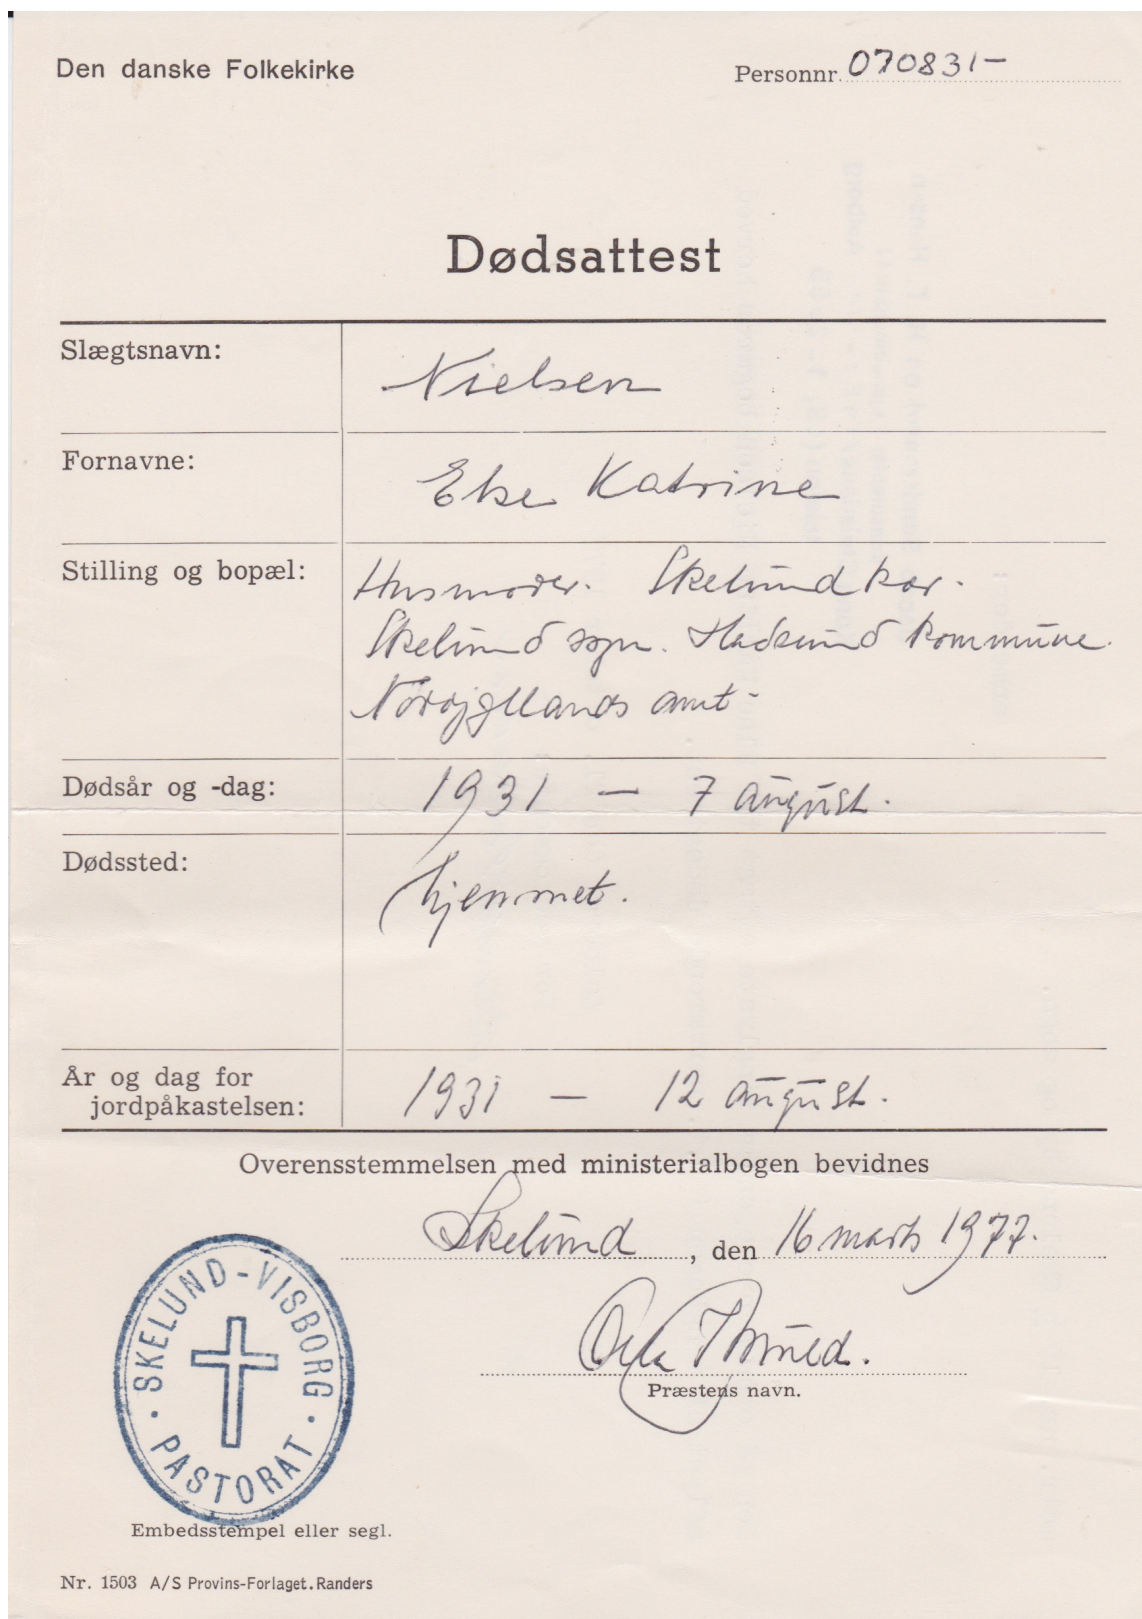 Den danske Folkekirke
Personnr. 070831-
Dødsattest
Slægtsnavn: Nielsen
Fornavne: Else Katrine
Stilling og bopæl: Husmoder. Skelund kær.
Skelund sogn. Hadsund kommune.
Nordjyllands amt-
Dødsår og -dag: 1931 - 7 august.
Dødssted: hjemmet.
År og dag for
jordpåkastelsen: 1931 - 12 august.
Overensstemmelsen med ministerialbogen bevidnes
Skelund, den 16 marts 1977.
Præstens navn.
SKELUND-VISBORG
PASTORAT
Embedsstempel eller segl.
Nr. 1503 A/S Provins-Forlaget. Randers